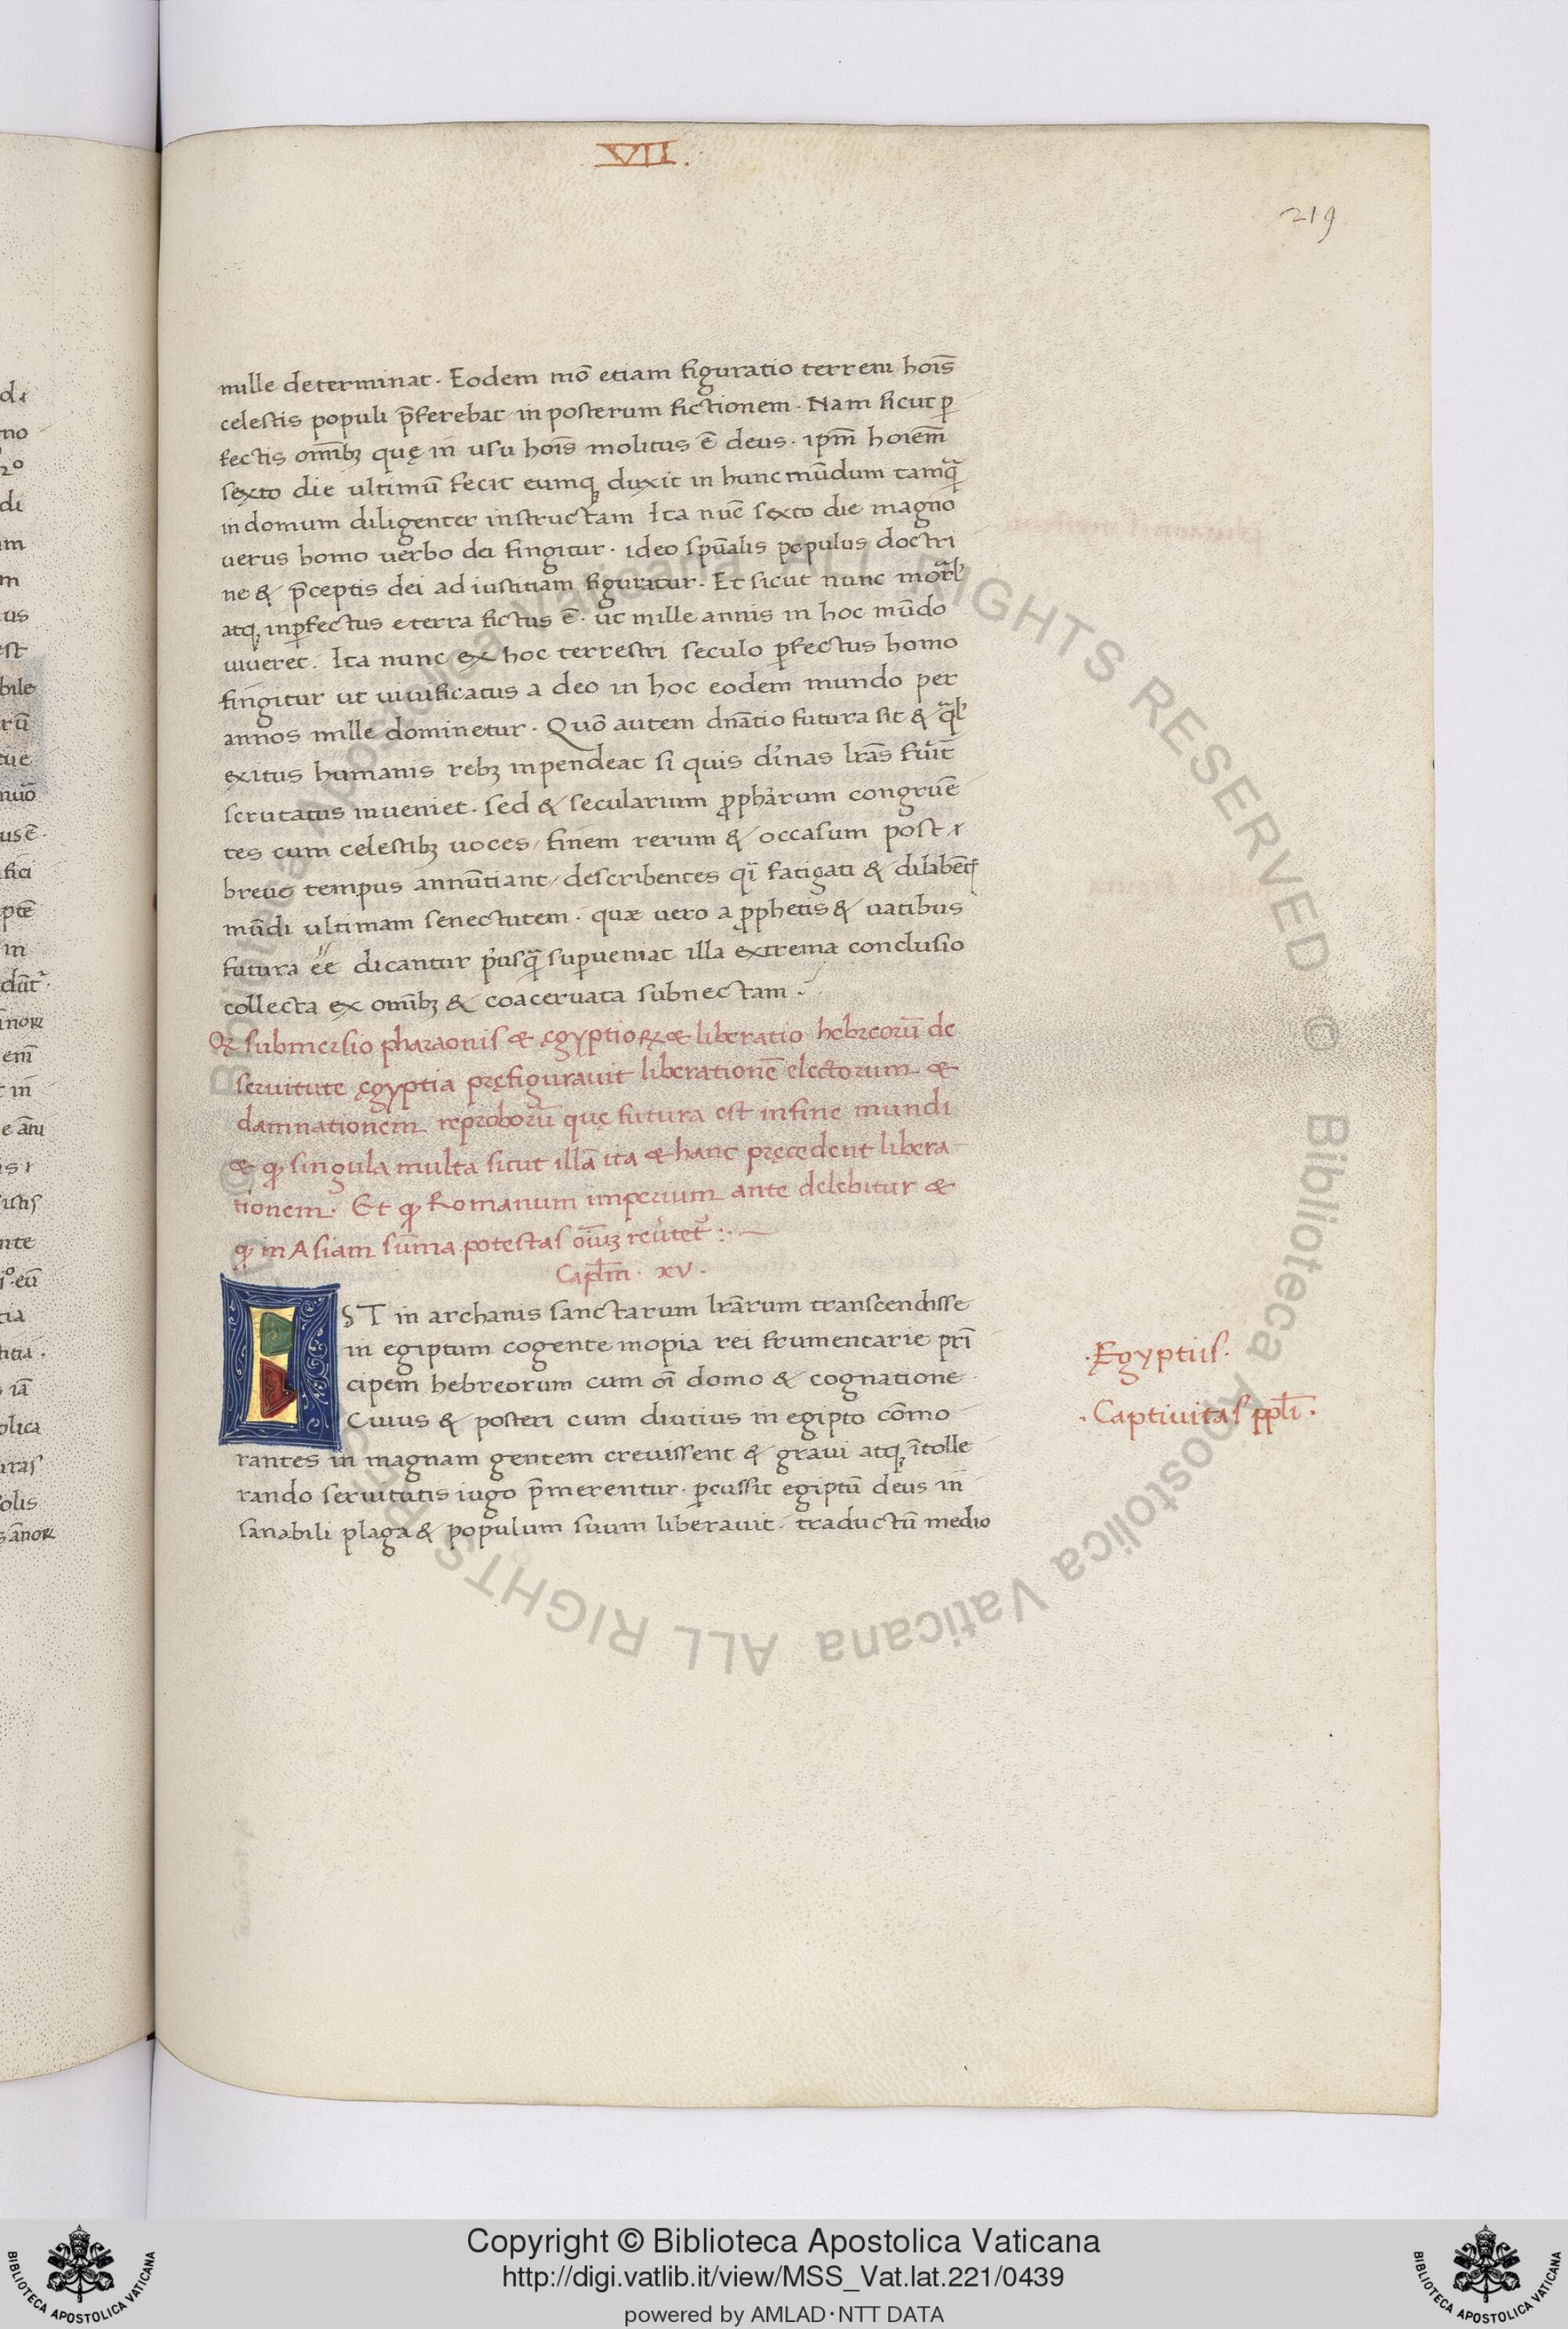 VII.
219
mille determinat. Eodem mo᷒ etiam figuratio terreni hoı̄s
celestis populi p̄ferebat in posterum fictionem. Nam sicut ꝑ
fectis om̄ıbꝫ quę in usu hoı̄s molitus ē deus. ip̄m hoıem̄
sexto die ultimū fecit eumqꝫ duxit in hunc mūdum tamq̄
in domum diligenter instructam Ita nūc sexto die magno
uerus homo uerbo dei fingitur. ideo spūalis populus doctri
ne & p̄ceptis dei ad iustitiam figuratur. Et sicut nunc mortl̄
atqꝫ inꝑfectus e terra fictus ē. ut mille annis in hoc mūdo
uiueret. Ita nunc ex hoc terrestri seculo ꝑfectus homo
fingitur ut uiuificatus a deo in hoc eodem mundo per
annos mille dominetur. Quō autem dn̄atio futura sit & q̄l
exitus humanis rebꝫ inpendeat si quis diuı̄nas lr̄as fuı̄t
scrutatus inueniet. sed & secularium ꝓphārum congruē
tes cum celestibꝫ uoces/ finem rerum & occasum post
breue tempus annūtiant/ describentes qı̄ fatigati & dilabētꝭ
mūdi ultimam senectutem. quæ uero a ꝓphetis & uatibus
futura ēe dicantur pı̄usq̄ suꝑueniat illa extrema conclusio
collecta ex om̄ıbꝫ & coaceruata subnectam.
Qꝫ submersio pharaonis et ęgyptioꝝ et liberatio hebreorū de
seruitute ęgyptia pręfigurauit liberationē electorum et
damnationem reproborū quę futura est in fine mundi
et ꝙ singula multa sicut illā ita et hanc pręcedent libera
tionem. Et ꝙ Romanum imperium ante delebitur et
ꝙ in Asiam sūma potestas oı̄uꝫ reu̓tet᷑ :·
Capl̄m. xv.
EST in archanis sanctarum lr̄arum transcendisse
in egiptum cogente inopia rei frumentarie prı̄
cipem hebreorum cum oı̄ domo & cognatione
Cuius & posteri cum diutius in egipto cōmo
rantes in magnam gentem creuissent & graui atqꝫ ītolle
rando seruitutis iugo p̄merentur. ꝑcussit egiptū deus in
sanabili plaga & populum suum liberauit. traductū medio
.Ęgyptiis.
.Captiuitas ppl̄i.
Copyright © Biblioteca Apostolica Vaticana
http://digi.vatlib.it/view/MSS_Vat.lat.221/0439
powered by AMLAD·NTT DATA